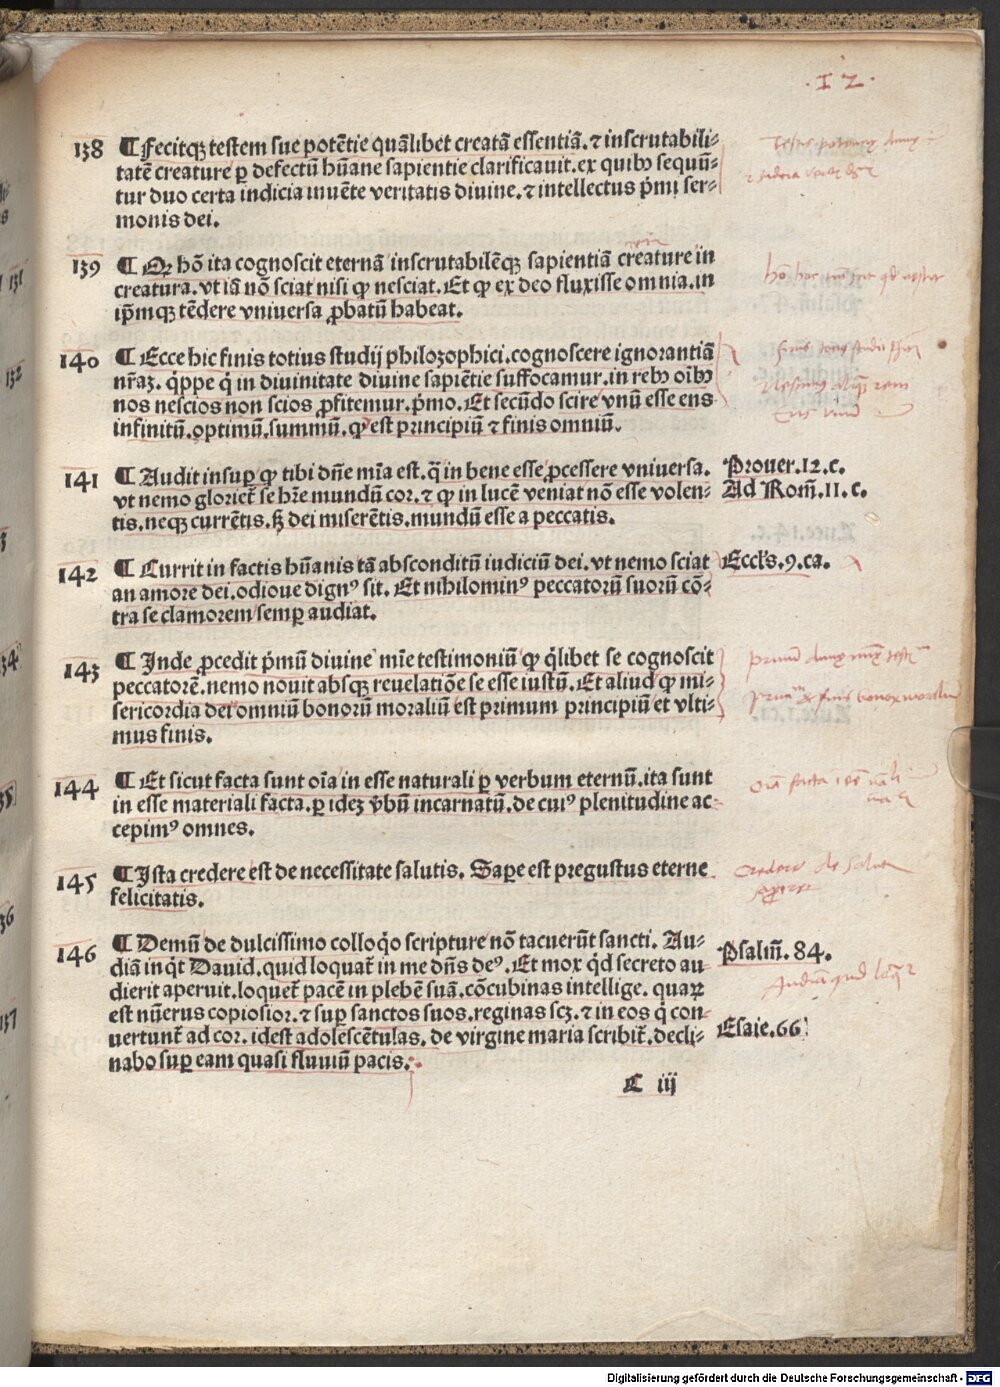 .12.
138 ¶ Fecitqꝫ testem sue potētie quālibet creatā essentiā. ⁊ inscrutabili⸗
tatē creature ꝑ defectū hūane sapientie clarificauit. ex quibꝰ sequū⸗
tur duo certa indicia inuēte veritatis diuine. ⁊ intellectus pͥmi ser⸗
monis dei.
139 ¶ Qꝛ hō ita cognoscit eternā inscrutabilēqꝫ sapientiā creature in
creatura. vt iā nō sciat nisi ꝙ nesciat. Et ꝙ ex deo fluxisse omnia. in
ip̄mqꝫ tēdere vniuersa ꝓbatū habeat.
140 ¶ Ecce hic finis totius studij philozophici. cognoscere ignorantiā
nr̄aꝫ. qͥppe qͥ in diuinitate diuine sapiētie suffocamur. in rebꝰ oībꝰ
nos nescios non scios ꝓfitemur. pͥmo. Et secūdo scire vnū esse ens
infinitū. optimū. summū. ꝙ est principiū ⁊ finis omniū.
141 ¶ Audit insuꝑ ꝙ tibi dn̄e mīa est. q̄ in bene esse ꝓcessere vniuersa.
Prouer. 12. c.
vt nemo glorieť se hr̄e mundū cor. ⁊ ꝙ in lucē veniat nō esse volen⸗
Ad Rom̄. 11. c.
tis. neqꝫ currētis. sꝫ dei miserētis. mundū esse a peccatis.
142 ¶ Currit in factis hūanis tā absconditū iudiciū dei. vt nemo sciat
Eccl's. 9. ca.
an amore dei. odioue dignꝰ sit. Et nihilominꝰ peccatorū suorū cō⸗
tra se clamorem semꝑ audiat.
143 ¶ Inde ꝓcedit pͥmū diuine mīe testimoniū ꝙ qͥlibet se cognoscit
peccatorē. nemo nouit absqꝫ reuelatiōe se esse iustū. Et aliud ꝙ mi⸗
sericordia dei omniū bonorū moraliū est primum principiū et vlti⸗
mus finis.
144 ¶ Et sicut facta sunt oīa in esse naturali ꝑ verbum eternū. ita sunt
in esse materiali facta. ꝑ ideꝫ v̄bū incarnatū. de cuiꝰ plenitudine ac⸗
cepimꝰ omnes.
145 ¶ Ista credere est de necessitate salutis. Sapere est pregustus eterne
felicitatis.
146 ¶ Demū de dulcissimo colloqͦo scripture nō tacuerūt sancti. Au⸗
Psalm̄. 84.
diā inqͥt Dauid. quid loquať in me dn̄s deꝰ. Et mox qͥd secreto au⸗
dierit aperuit. loqueť pacē in plebē suā. cōcubinas intellige. quaꝝ
est nūerus copiosior. ⁊ suꝑ sanctos suos. reginas scꝫ. ⁊ in eos qͥ con⸗
Esaie. 66
uertunť ad cor. idest adolescētulas. de virgine maria scribiť. decli⸗
nabo suꝑ eam quasi fluuiū pacis.
C iij
131
132
Digitalisierung gefördert durch die Deutsche Forschungsgemeinschaft - DFG